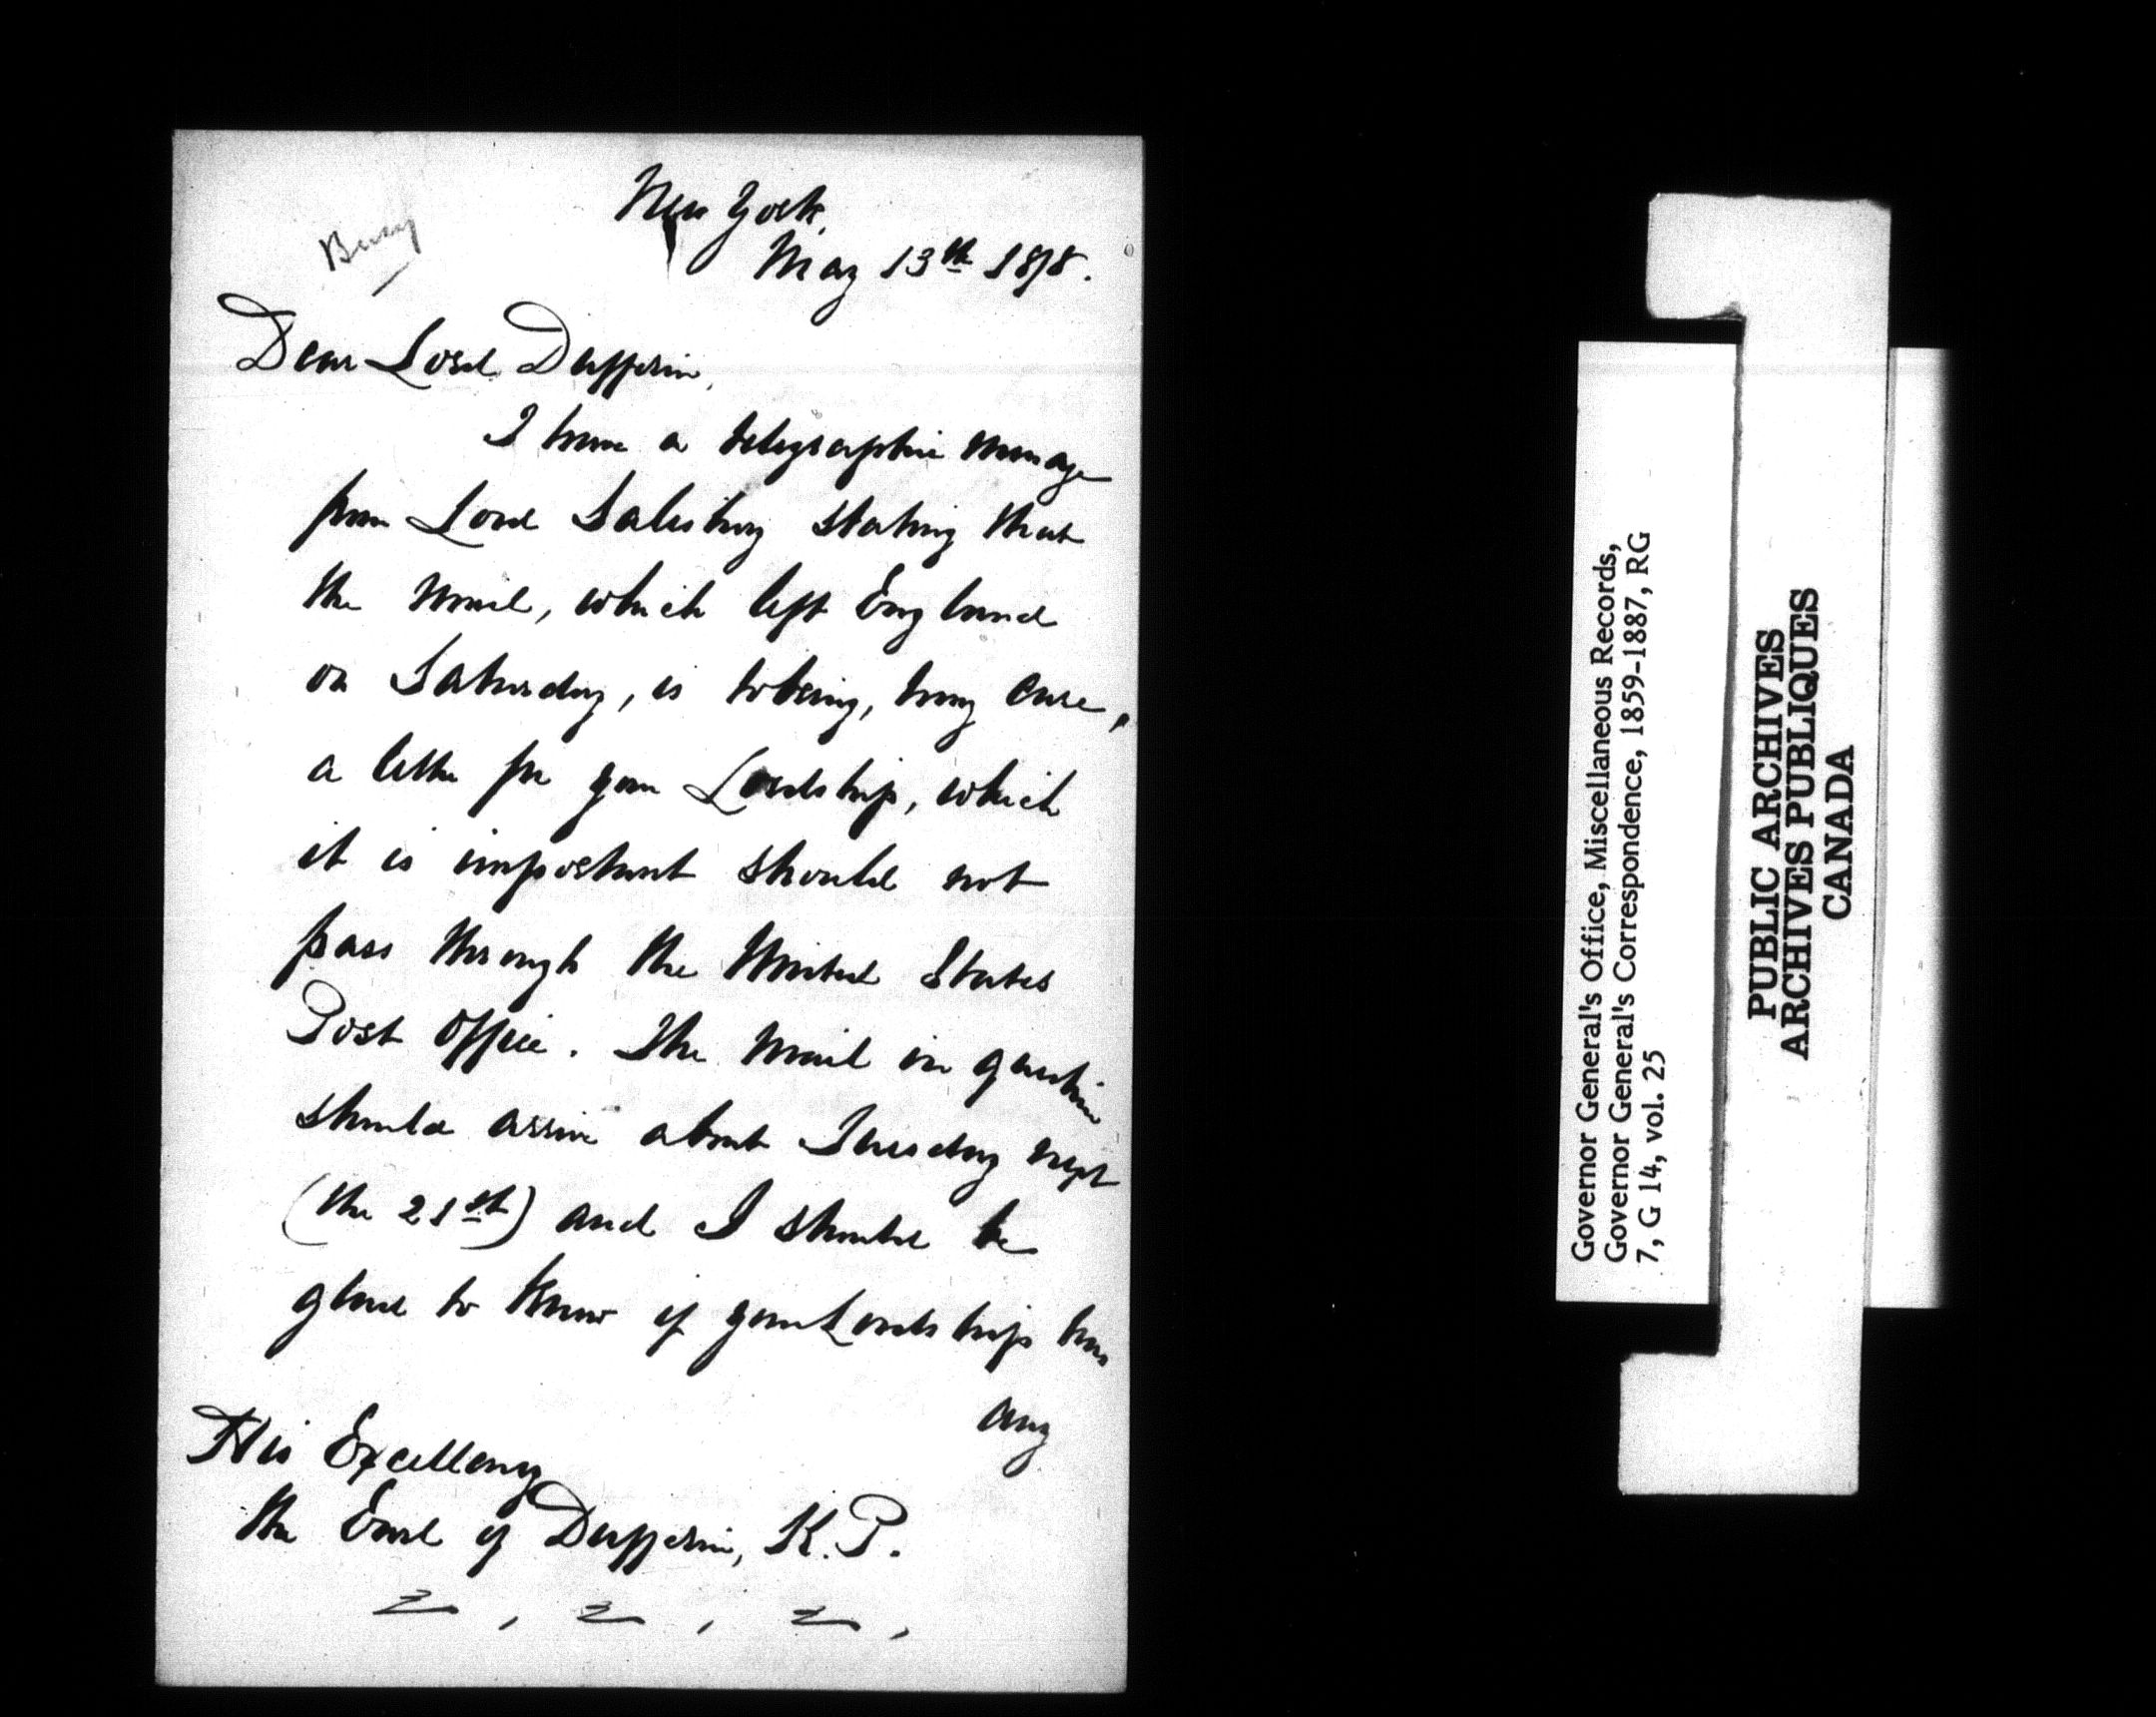 Busy
New York,
May 13th 1878.
Dear Lord Dufferin,
I have a telegraphic message
from Lord Salisbury stating that
the mail, which left England
on Saturday, is to bring, to my care,
a letter for your Lordship, which
it is important should not
pass through the United States
Post Office. The mail in question
should arrive about Tuesday next
(the 21st) and I should be
glad to know if your Lordship has
any
His Excellency
the Earl of Dufferin, K.P.
Governor General's Office, Miscellaneous Records,
Governor General's Correspondence, 1859-1887, RG
7, G 14, vol. 25
PUBLIC ARCHIVES
ARCHIVES PUBLIQUES
CANADA